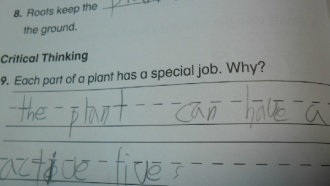 8. Roots keep the
the ground.
Critical Thinking
9. Each part of a plant has a special job. Why?
the plant can have a
active fives